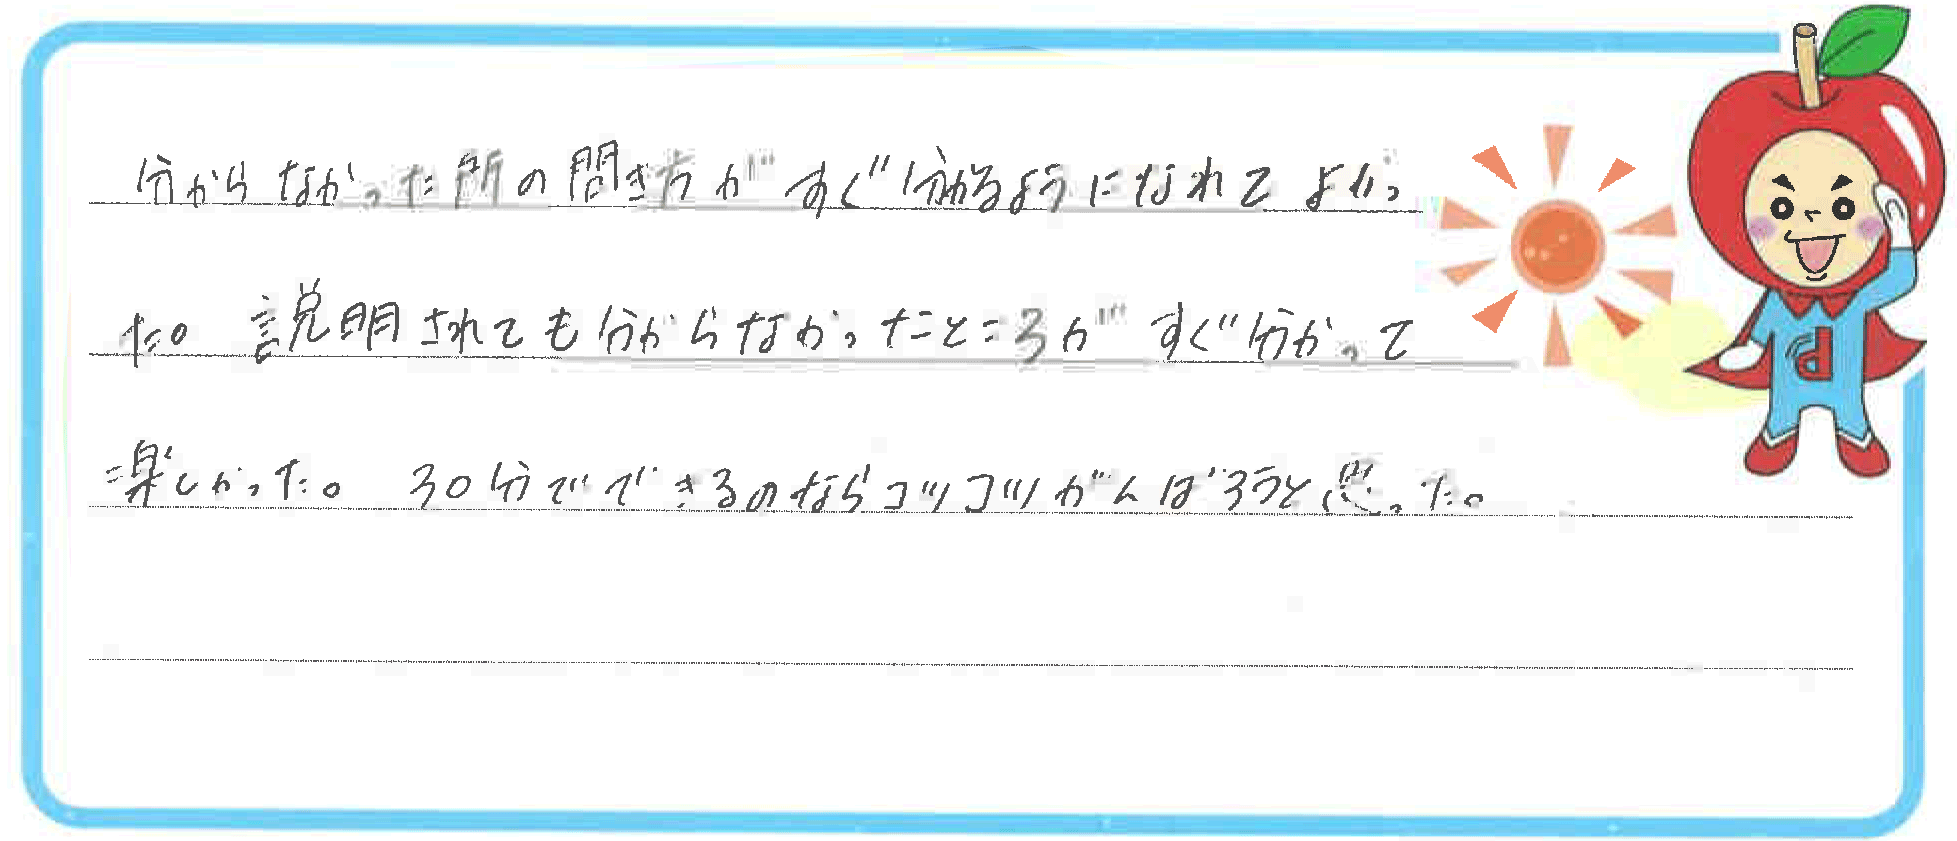 分からなかった所の問き方がすぐ分かるようになれてよかっ
た。説明されても分からなかったところがすぐ分かって
楽しかった。30分でできるのならコツコツがんばろうと思った。